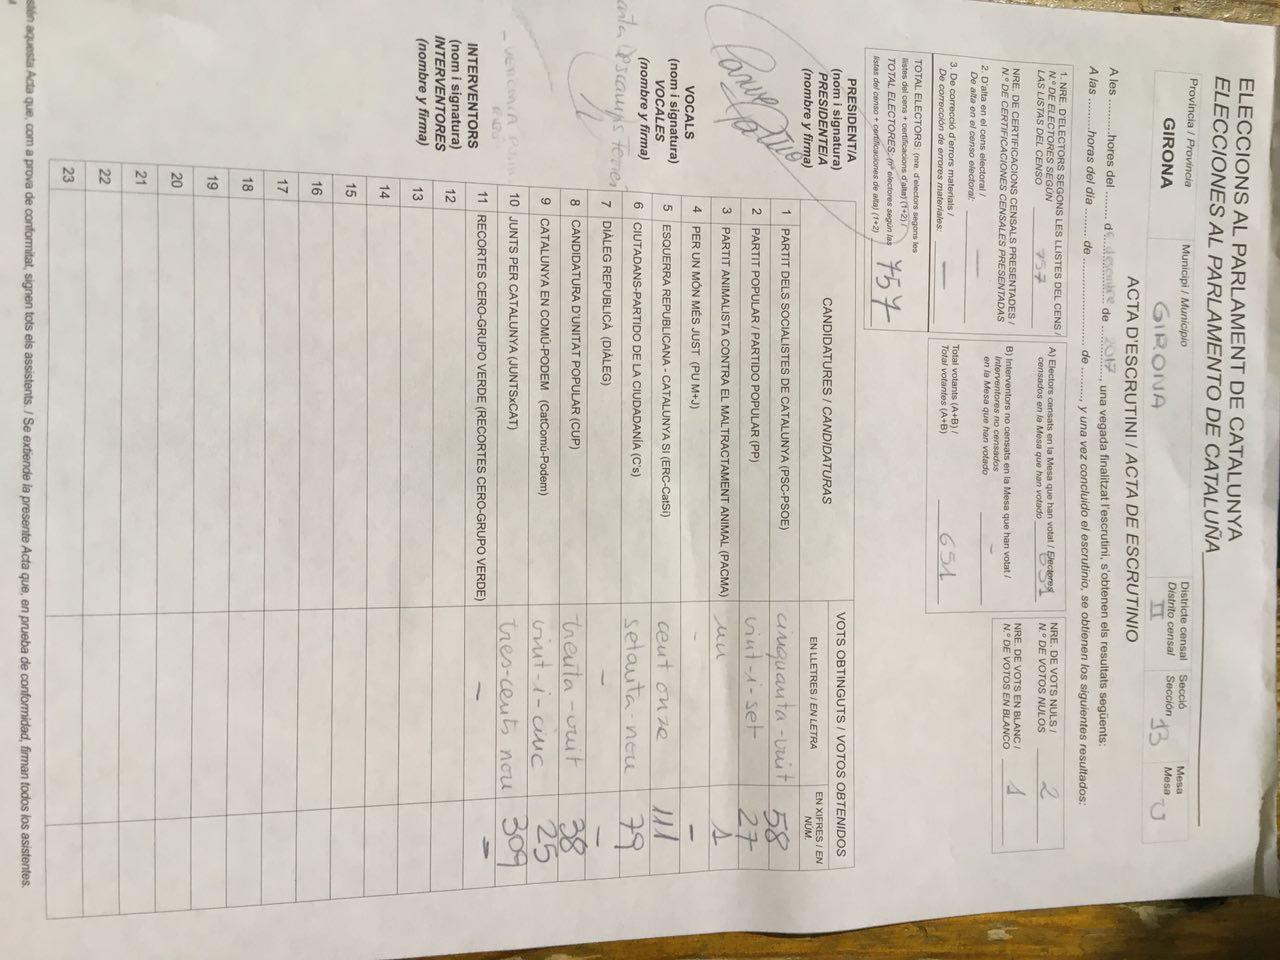 ELECCIONS AL PARLAMENT DE CATALUNYA
ELECCIONES AL PARLAMENTO DE CATALUÑA
Província / Provincia
GIRONA
Municipi / Municipio
GIRONA
Districte censal
Distrito censal
II
Secció
Sección
13
Mesa
Mesa
U
ACTA D'ESCRUTINI / ACTA DE ESCRUTINIO
A les ..........hores del ........ de desembre de 2017, una vegada finalitzat l'escrutini, s'obtenen els resultats següents:
A las ..........horas del día ........ de ........................ de ........, y una vez concluido el escrutinio, se obtienen los siguientes resultados:
1. NRE. D'ELECTORS SEGONS LES LLISTES DEL CENS /
N.º DE ELECTORES SEGÚN
LAS LISTAS DEL CENSO 757
NRE. DE CERTIFICACIONS CENSALS PRESENTADES /
N.º DE CERTIFICACIONES CENSALES PRESENTADAS
2. D'alta en el cens electoral /
De alta en el censo electoral: —
3. De correcció d'errors materials /
De corrección de errores materiales: —
TOTAL ELECTORS: (nre. d'electors segons les
llistes del cens + certificacions d'alta) (1+2) /
TOTAL ELECTORES: (nº electores según las
listas del censo + certificaciones de alta) (1+2)
757
A) Electors censats en la Mesa que han votat / Electores
censados en la Mesa que han votado 651
B) Interventors no censats en la Mesa que han votat /
Interventores no censados
en la Mesa que han votado -
Total votants (A+B) /
Total votantes (A+B) 651
NRE. DE VOTS NULS /
N.º DE VOTOS NULOS 2
NRE. DE VOTS EN BLANC /
N.º DE VOTOS EN BLANCO 1
PRESIDENT/A
(nom i signatura)
PRESIDENTE/A
(nombre y firma)
VOCALS
(nom i signatura)
VOCALES
(nombre y firma)
INTERVENTORS
(nom i signatura)
INTERVENTORES
(nombre y firma)
CANDIDATURES / CANDIDATURAS
VOTS OBTINGUTS / VOTOS OBTENIDOS
EN LLETRES / EN LETRA
EN XIFRES / EN NÚM.
1 PARTIT DELS SOCIALISTES DE CATALUNYA (PSC-PSOE) cinquanta-vuit 58
2 PARTIT POPULAR / PARTIDO POPULAR (PP) vint-i-set 27
3 PARTIT ANIMALISTA CONTRA EL MALTRACTAMENT ANIMAL (PACMA) un 1
4 PER UN MÓN MÉS JUST (PU M+J) - -
5 ESQUERRA REPUBLICANA - CATALUNYA SÍ (ERC-CatSí) cent onze 111
6 CIUTADANS-PARTIDO DE LA CIUDADANÍA (C's) setanta-nou 79
7 DIÀLEG REPUBLICÀ (DIÀLEG) - -
8 CANDIDATURA D'UNITAT POPULAR (CUP) trenta-vuit 38
9 CATALUNYA EN COMÚ-PODEM (CatComú-Podem) vint-i-cinc 25
10 JUNTS PER CATALUNYA (JUNTSxCAT) tres-cents nou 309
11 RECORTES CERO-GRUPO VERDE (RECORTES CERO-GRUPO VERDE) - -
12
13
14
15
16
17
18
19
20
21
22
23
aquesta Acta que, com a prova de conformitat, signen tots els assistents. / Se extiende la presente Acta que, en prueba de conformidad, firman todos los asistentes.